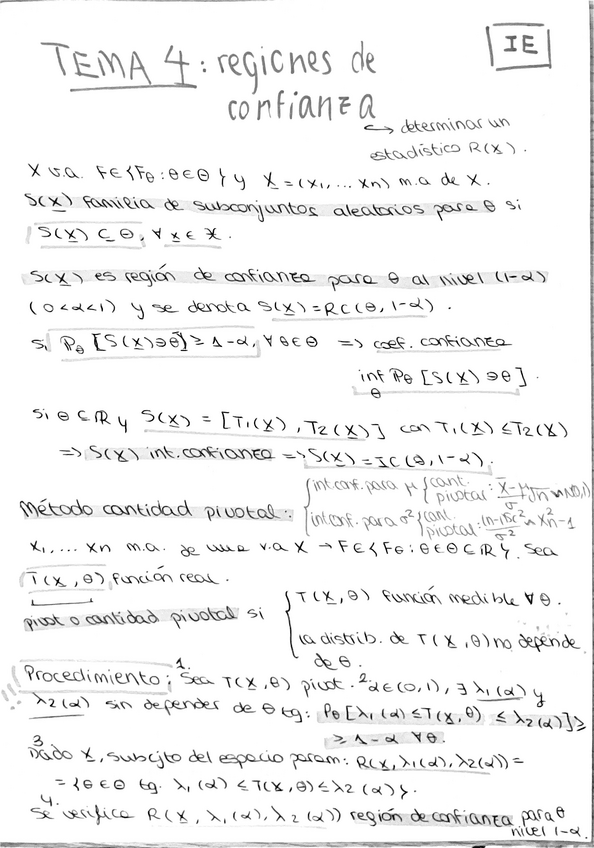 TEMA 4: regiones de
confianza
IE
↪ determinar un
estadístico R(X).
X v.a. F∈{Fθ:θ∈Θ} y X=(x₁,...xn) m.a de X.
S(X) familia de subconjuntos aleatorios para θ si
S(X) ⊆ Θ, ∀ x ∈ X.
S(X) es región de confianza para θ al nivel (1-α)
(0<α<1) y se denota S(X)=RC(θ, 1-α).
si Pθ [S(X)∋θ] ≥ 1-α, ∀θ∈Θ ⇒ coef. confianza
inf Pθ [S(X)∋θ].
θ
si Θ⊆ℝ y S(X) = [T₁(X), T₂(X)] con T₁(X) ≤T₂(X)
⇒ S(X) int. confianza ⇒ S(X)=IC(θ, 1-α).
Método cantidad pivotal:
{ int conf. para μ { cant. pivotal: (x̄-μ)/σ √n ~ N(0,1)
int conf. para σ² { cant. pivotal: (n-1)Sc²/σ² ~ χ²n-1
x₁,... xn m.a. de una v.a X → F∈{Fθ:θ∈Θ⊆ℝ}. Sea
T(X,θ) función real.
pivot o cantidad pivotal si
{ T(X,θ) función medible ∀θ.
la distrib. de T(X,θ) no depende
de θ.
!!! Procedimiento: 1. Sea T(X,θ) pivot. 2. α∈(0,1), ∃ λ₁(α) y
λ₂(α) sin depender de θ tq: Pθ[λ₁(α) ≤T(X,θ) ≤ λ₂(α)] ≥
≥ 1-α ∀θ.
3. Dado X, subcjto del espacio param: R(X, λ₁(α), λ₂(α)) =
= {θ∈Θ tq. λ₁(α) ≤T(X,θ) ≤ λ₂(α)}.
4. Se verifica R(X, λ₁(α), λ₂(α)) región de confianza para θ
nivel 1-α.